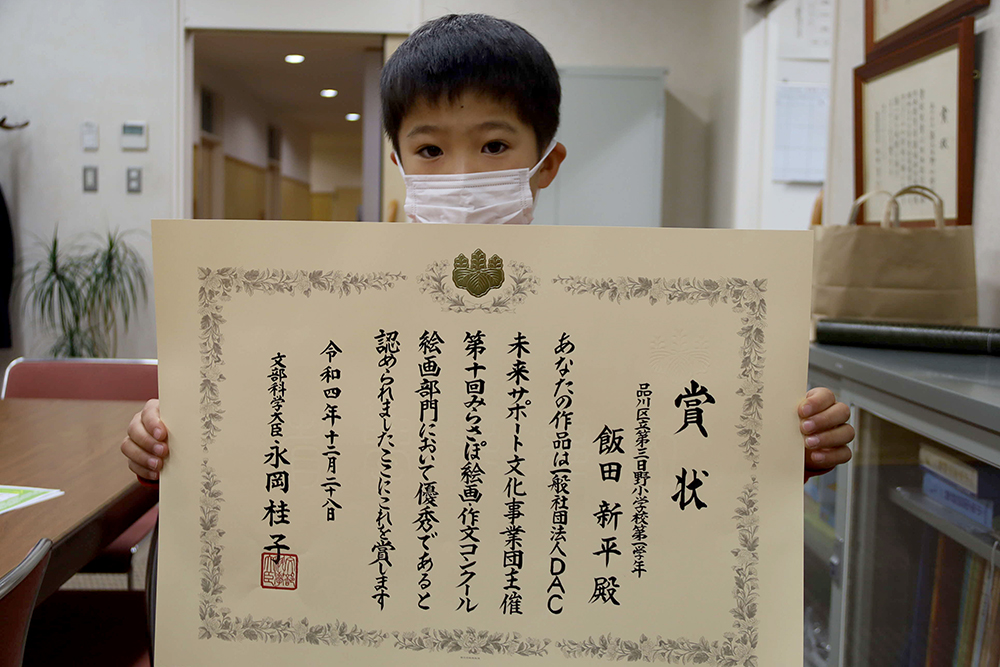 賞状
品川区立第三日野小学校第一学年
飯田新平殿
あなたの作品は一般社団法人DAC
未来サポート文化事業団主催
第十回みらさぽ絵画・作文コンクール
絵画部門において優秀であると
認められましたここにこれを賞します
令和四年十二月二十八日
文部科学大臣 永岡桂子